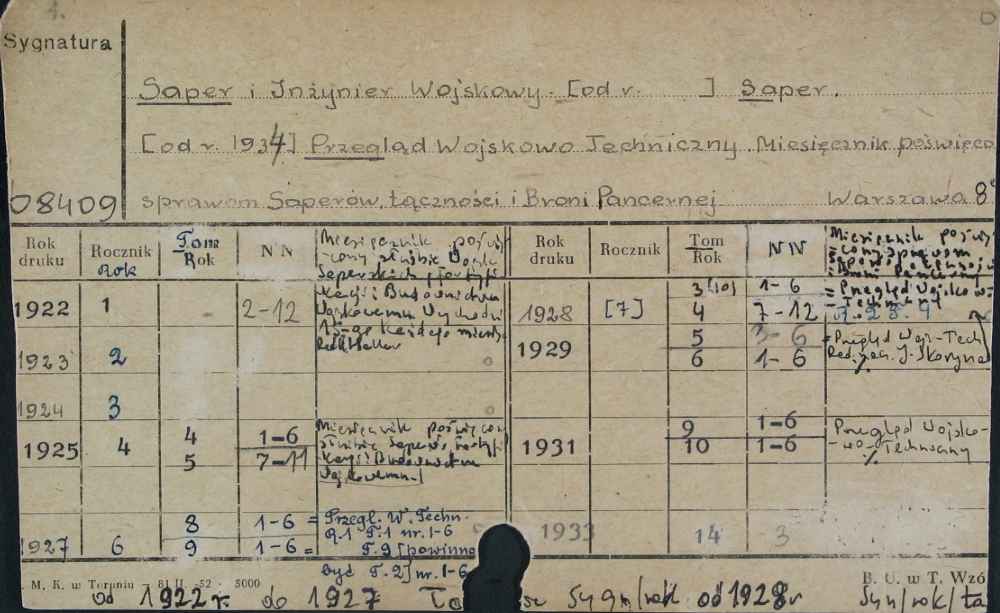 Sygnatura
Saper i Inżynier Wojskowy. [od r. ] Saper.
[od r. 1934] Przegląd Wojskowo Techniczny. Miesięcznik poświęco
08409 sprawom Saperów, Łączności i Broni Pancernej Warszawa 8°
Rok druku Rocznik Rok Tom Rok NN Miesięcznik poświę- Rok druku Rocznik Tom Rok NN Miesięcznik poświę-
-cony służbie Wojsk -cony sprawom
Saperskich, fortyfi
kacji i Budownictwu 3 [10] 1-6 = Przegląd Wojsko-
1922 1 2-12 Wojskowemu Wychodzi 1928 [7] 4 7-12
15-go każdego miesią
1923 2 1929 5 3-6 = Przegląd Wojs-Tech
6 1-6 Red. J. Skoryna
1924 3
1925 4 4 1-6 Miesięcznik poświęcon 1931 9 1-6 Przegląd Wojsko-
5 7-11 służbie Saperów, fortyfi 10 1-6 -wo-Techniczny
kacji i Budownictwu
Wojskowemu
1927 6 8 1-6 = Przegl. W. Techn. 1933 14 3
9 1-6 = T.1 nr. 1-6
T.9 [powinno
być T.2] nr. 1-6
M. K. w Toruniu - 81 II -52 - 5000 B. U. w T. Wzó
od 1922 r. do 1927 Sygn/rok od 1928 r Syn/rok/ta